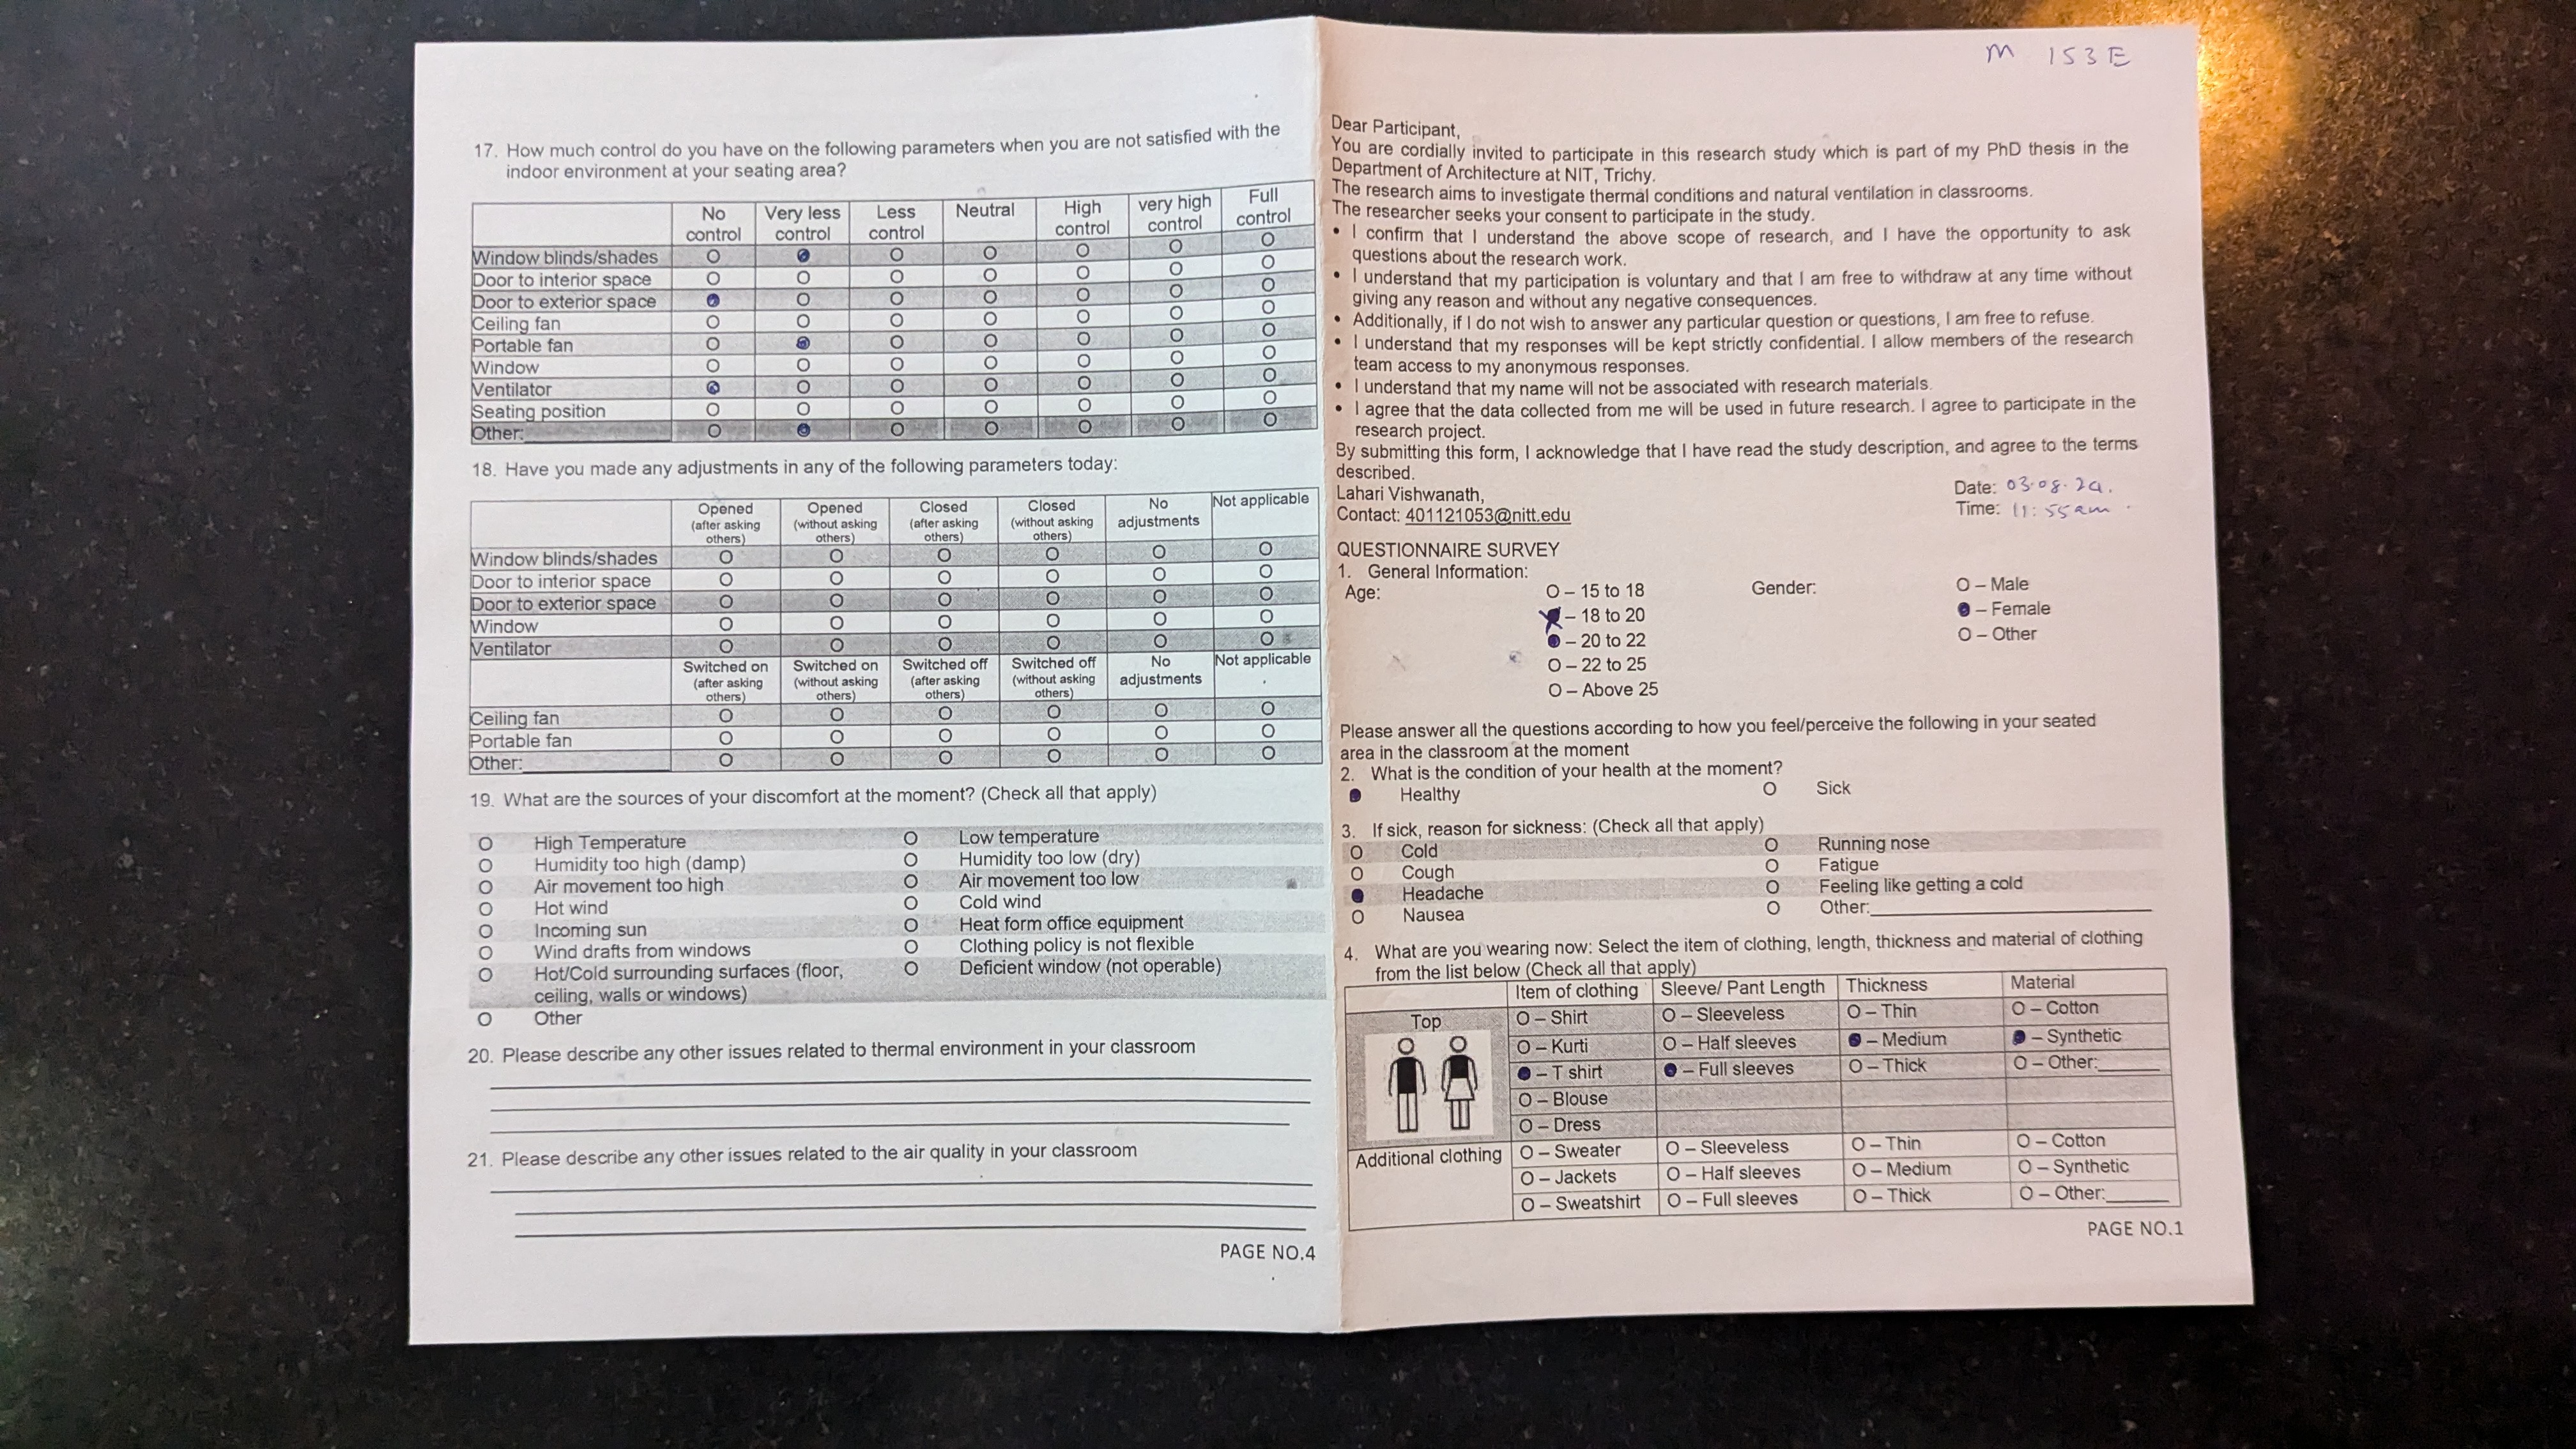 17. How much control do you have on the following parameters when you are not satisfied with the
indoor environment at your seating area?
No control Very less control Less control Neutral High control very high control Full control
Window blinds/shades O O O O O O
Door to interior space O O O O O O O
Door to exterior space O O O O O O
Ceiling fan O O O O O O O
Portable fan O O O O O O
Window O O O O O O O
Ventilator O O O O O O
Seating position O O O O O O O
Other: O O O O O O
18. Have you made any adjustments in any of the following parameters today:
Opened (after asking others) Opened (without asking others) Closed (after asking others) Closed (without asking others) No adjustments Not applicable
Window blinds/shades O O O O O O
Door to interior space O O O O O O
Door to exterior space O O O O O O
Window O O O O O O
Ventilator O O O O O O
Switched on (after asking others) Switched on (without asking others) Switched off (after asking others) Switched off (without asking others) No adjustments Not applicable
Ceiling fan O O O O O O
Portable fan O O O O O O
Other: O O O O O O
19. What are the sources of your discomfort at the moment? (Check all that apply)
O High Temperature O Low temperature
O Humidity too high (damp) O Humidity too low (dry)
O Air movement too high O Air movement too low
O Hot wind O Cold wind
O Incoming sun O Heat form office equipment
O Wind drafts from windows O Clothing policy is not flexible
O Hot/Cold surrounding surfaces (floor, O Deficient window (not operable)
ceiling, walls or windows)
O Other
20. Please describe any other issues related to thermal environment in your classroom
21. Please describe any other issues related to the air quality in your classroom
PAGE NO.4
M 153E
Dear Participant,
You are cordially invited to participate in this research study which is part of my PhD thesis in the
Department of Architecture at NIT, Trichy.
The research aims to investigate thermal conditions and natural ventilation in classrooms.
The researcher seeks your consent to participate in the study.
• I confirm that I understand the above scope of research, and I have the opportunity to ask
questions about the research work.
• I understand that my participation is voluntary and that I am free to withdraw at any time without
giving any reason and without any negative consequences.
• Additionally, if I do not wish to answer any particular question or questions, I am free to refuse.
• I understand that my responses will be kept strictly confidential. I allow members of the research
team access to my anonymous responses.
• I understand that my name will not be associated with research materials.
• I agree that the data collected from me will be used in future research. I agree to participate in the
research project.
By submitting this form, I acknowledge that I have read the study description, and agree to the terms
described.
Lahari Vishwanath,
Contact: 401121053@nitt.edu
Date: 03.08.24.
Time: 11:55am.
QUESTIONNAIRE SURVEY
1. General Information:
Age: O – 15 to 18 Gender: O – Male
– 18 to 20 – Female
– 20 to 22 O – Other
O – 22 to 25
O – Above 25
Please answer all the questions according to how you feel/perceive the following in your seated
area in the classroom at the moment
2. What is the condition of your health at the moment?
Healthy O Sick
3. If sick, reason for sickness: (Check all that apply)
O Cold O Running nose
O Cough O Fatigue
Headache O Feeling like getting a cold
O Nausea O Other:
4. What are you wearing now: Select the item of clothing, length, thickness and material of clothing
from the list below (Check all that apply)
Item of clothing Sleeve/ Pant Length Thickness Material
Top O – Shirt O – Sleeveless O – Thin O – Cotton
O – Kurti O – Half sleeves – Medium – Synthetic
– T shirt – Full sleeves O – Thick O – Other:
O – Blouse
O – Dress
Additional clothing O – Sweater O – Sleeveless O – Thin O – Cotton
O – Jackets O – Half sleeves O – Medium O – Synthetic
O – Sweatshirt O – Full sleeves O – Thick O – Other:
PAGE NO.1